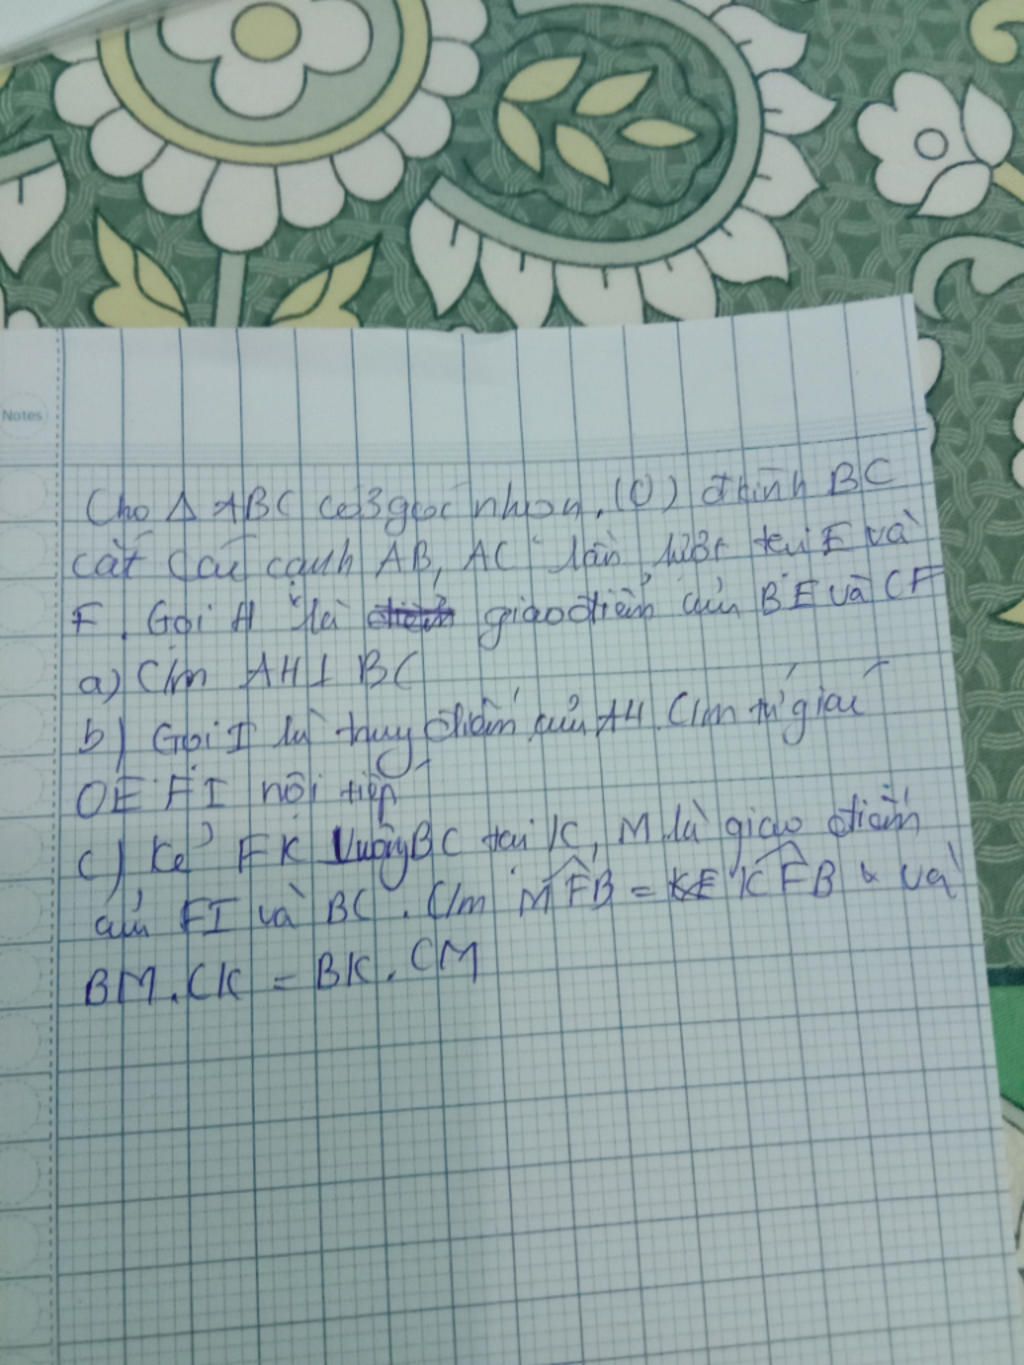 Notes
Cho Δ ABC có 3 góc nhọn, (O) đkính BC
cắt các cạnh AB, AC lần lượt tại E và
F. Gọi H là giao điểm của BE và CF
a) C/m AH ⊥ BC
b) Gọi I là trung điểm của AH. C/m tứ giác
OEFI nội tiếp
c) Kẻ FK vuông BC tại K, M là giao điểm
của FI và BC. C/m MFB = KFB và
BM.CK = BK.CM